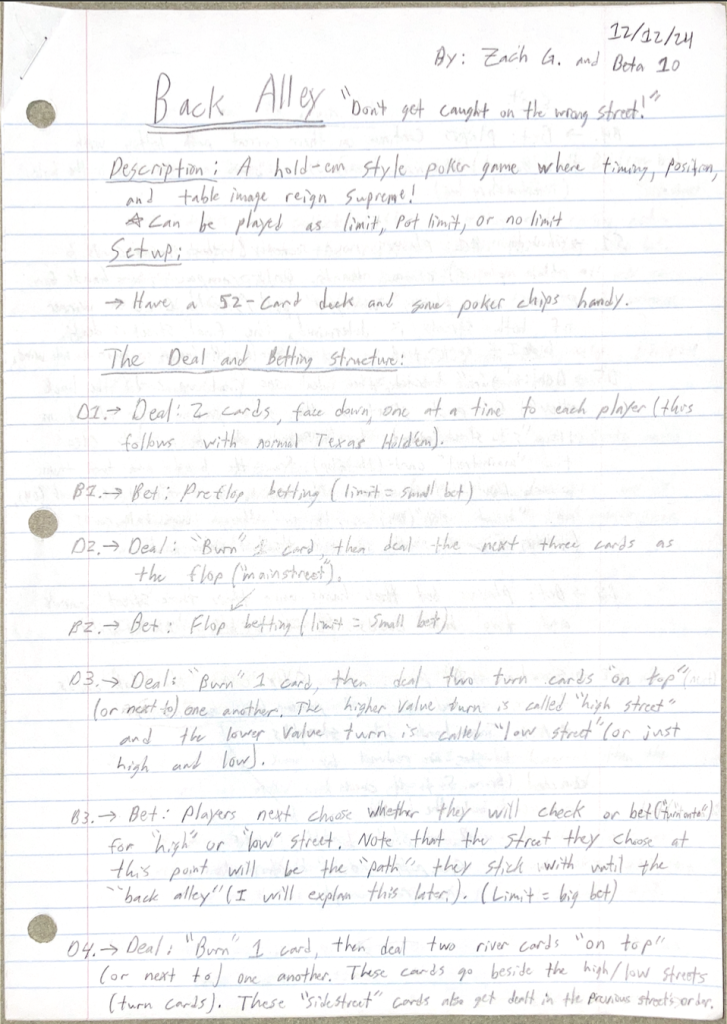 12/12/24
By: Zach G. and Beta 10
Back Alley "Don't get caught on the wrong street!"
Description: A hold-em style poker game where timing, position,
and table image reign supreme!
☆ Can be played as limit, pot limit, or no limit
Setup:
→ Have a 52-card deck and some poker chips handy.
The Deal and Betting Structure:
D1.→ Deal: 2 cards, face down, one at a time to each player (this
follows with normal Texas Hold'em).
B1.→ Bet: Preflop betting (limit = small bet)
D2.→ Deal: "Burn" 1 card, then deal the next three cards as
the flop ("mainstreet").
B2.→ Bet: Flop betting (limit = small bet)
D3.→ Deal: "Burn" 1 card, then deal two turn cards "on top"
(or next to) one another. The higher value turn is called "high street"
and the lower value turn is called "low street" (or just
high and low).
B3.→ Bet: Players next choose whether they will check or bet ("turn onto")
for "high" or "low" street. Note that the street they choose at
this point will be the "path" they stick with until the
"back alley" (I will explain this later.). (Limit = big bet)
D4.→ Deal: "Burn" 1 card, then deal two river cards "on top"
(or next to) one another. These cards go beside the high/low streets
(turn cards). These "sidestreet" cards also get dealt in the previous streets order.